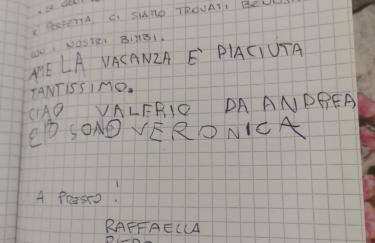 È PERFETTA, CI SIAMO TROVATI
I NOSTRI BIMBI.
A ME LA VACANZA È PIACIUTA
TANTISSIMO.
CIAO VALERIO DA ANDREA
E IO SONO VERONICA
A PRESTO!
RAFFAELLA